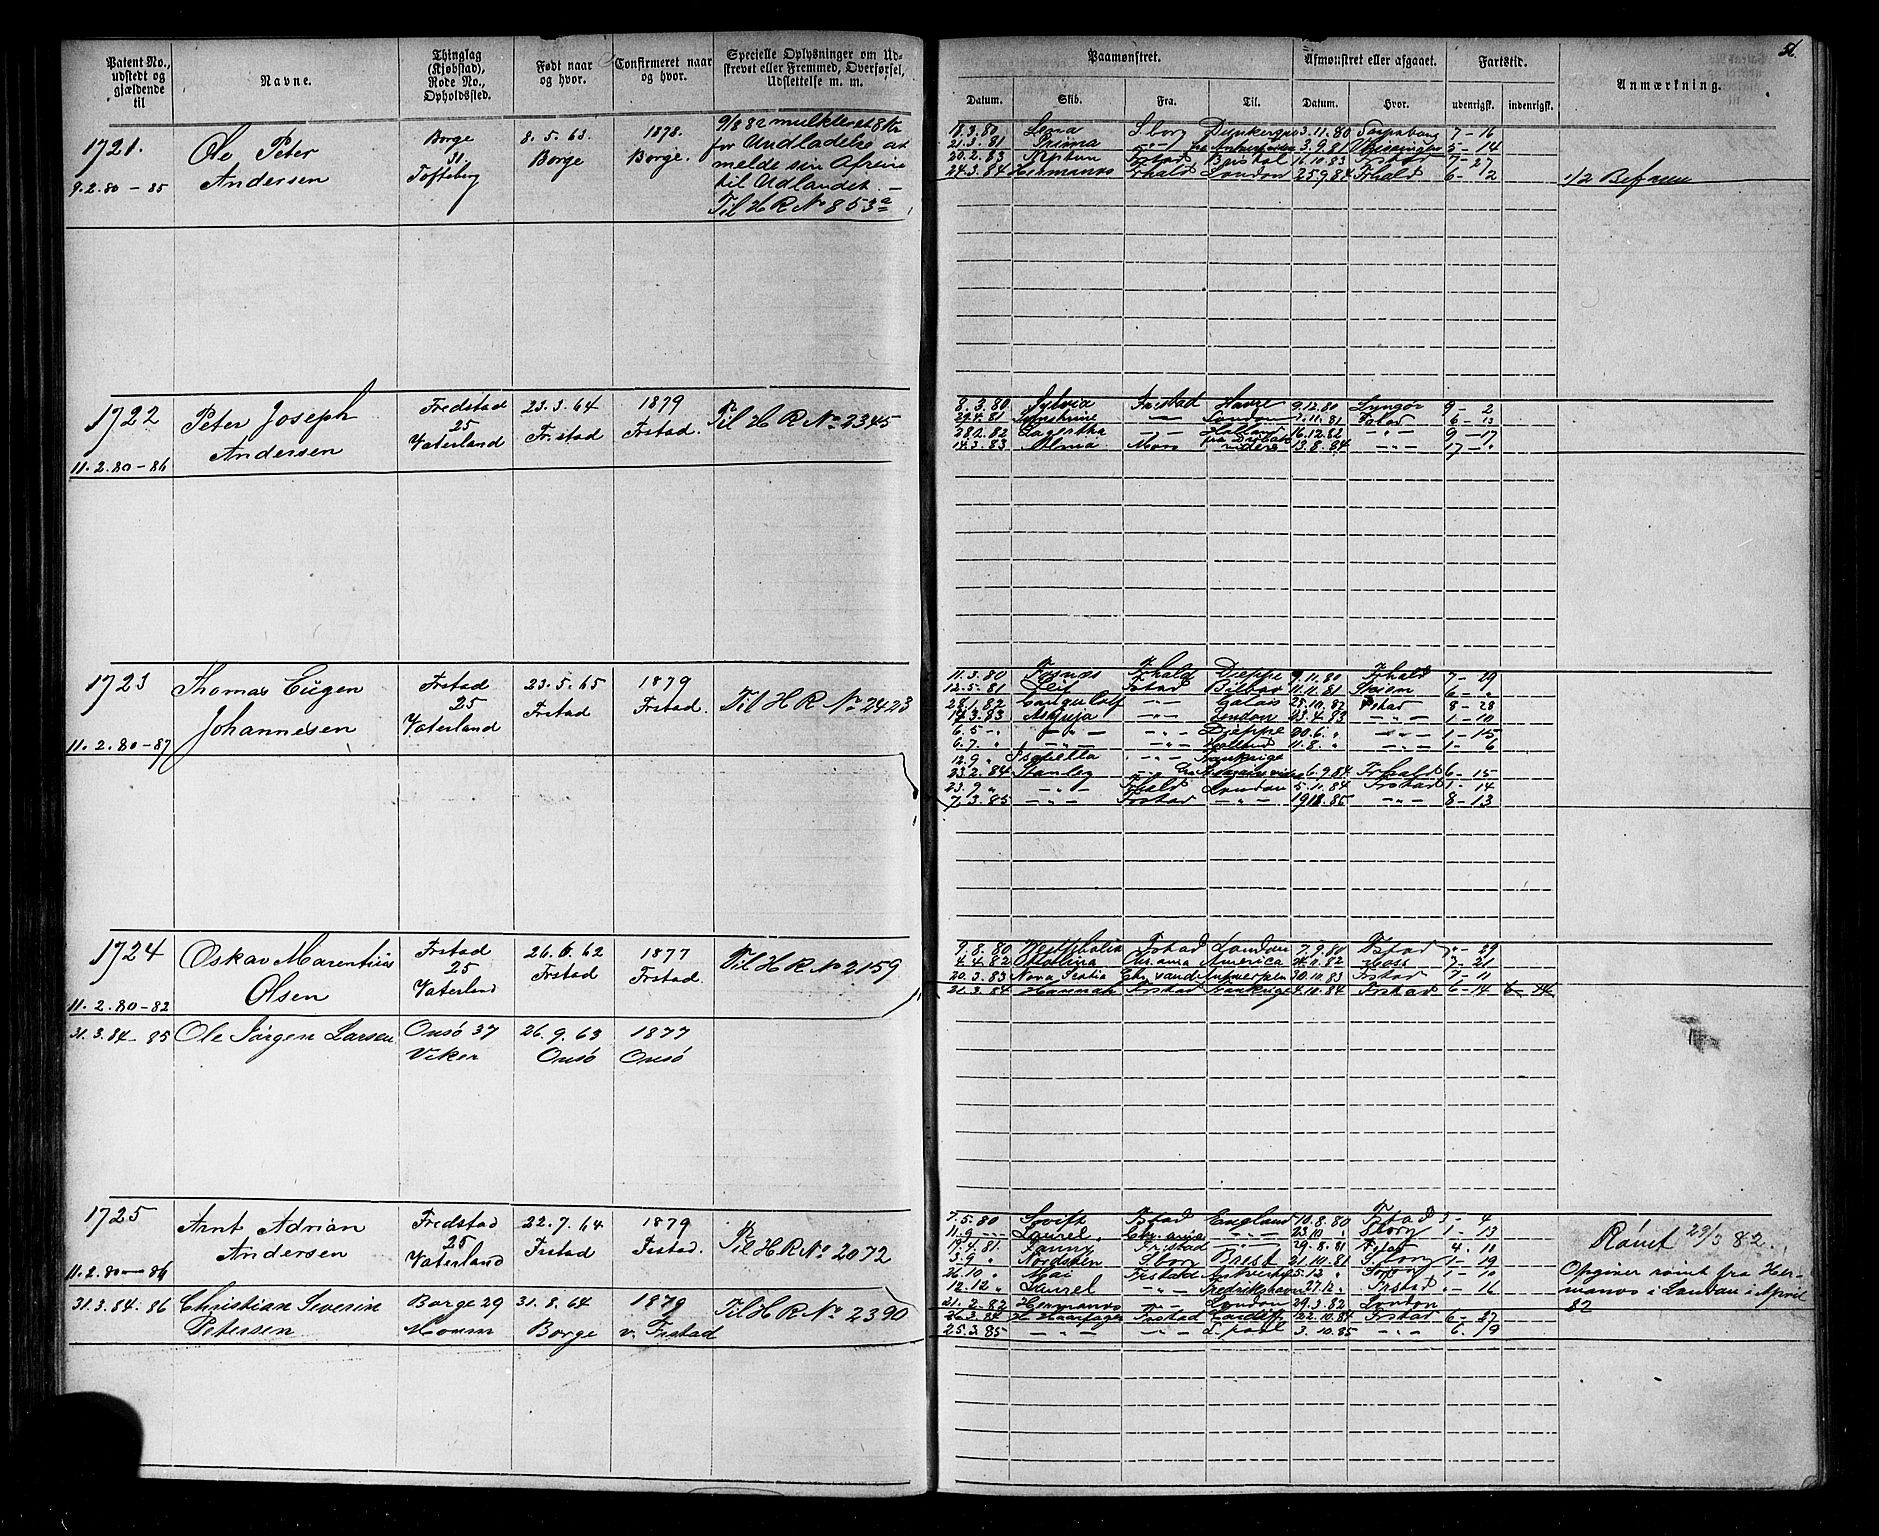 Patent No., udstedt og gjældende til
Navne.
Thinglag (Kjøbstad), Rode No., Opholdssted.
Født naar og hvor.
Confirmeret naar og hvor.
Specielle Oplysninger om Udskrevet eller Fremmed, Overførsel, Udslettelse m. m.
Paamønstret.
Afmønstret eller afgaaet.
Fartstid.
Anmærkning.
51.
Datum. Skib. Fra. Til. Datum. Hvor. udenrigsk. indenrigsk.
1721.
9.2.80 – 85
Ole Peter
Andersen
Borge
31
Tofteberg
8.5.63.
Borge
1878.
Borge.
9/8 82 mulkteret 8 Kr
for Undladelse at
melde sin Afreise
til Udlandet. –
Til H R No 853a
18.3.80 Lena S.borg Dynkerque 3.11.80 Sarpsborg 7 – 16
21.3.81 Prima –"– 3.9.81 Vlissingen 5 – 14
20.2.83 Neptun Frstad Bristol 16.10.83 Frstad 7 – 27
24.3.84 Hermanos Frhald London 25.9.84 Frhald 6 – 2
1/2
1722
11.2.80 – 86
Peter Joseph
Andersen
Fredstad
25
Vaterland
23.3.64
Fr.stad
1879
Frstad.
Til H R No 2345
8.3.80 Sylvia Fristad Havre 9.12.80 Lyngør 9 – 2
29.4.81 –"– London 11.81 Fstad 6 – 13
28.2.82 Lagertha –"– Holland 16.12.82 –"– 9 – 17
14.3.83 Alma Moss 13.8.84 –"– 17 – "
1723
11.2.80 – 87
Thomas Eugen
Johannesen
Frstad
25
Vaterland
23.5.65
Frstad
1879
Frstad.
Til H R No 2423
11.3.80 Fosnæs Frhald Dieppe 9.11.80 Frhald 7 – 29
12.5.81 Leif Frstad Bilbao 11.11.81 6 – "
28.1.82 –"– Calais 25.10.82 Frstad 8 – 28
14.3.83 Askuja –"– London 23.4.83 –"– 1 – 10
6.5 –"– –"– –"– Dieppe 20.6. " –"– 1 – 15
6.7. " –"– –"– Holland 11.8. " –"– 1 – 6
12.9 " Isabella –"– Frankrige
23.2.84 Stanley –"– 6.9.84 Frhald 6 – 15
23.9 " –"– Frhald London 5.11.84 Frstad 1 – 14
7.3.85 –"– Frstad –"– 19.11.85 –"– 8 – 13
1724
11.2.80 – 82
Oskar Marentius
Olsen
Frstad
25
Vaterland
26.6.62
Frstad
1877
Frstad.
Til H R No 2159
9.8.80 Westphalia Frstad London 7.9.80 Fstad " – 29
4.4.82 Ottolina Chr.ania America 24.11.82 Moss 7 – 21
20.3.83 Nova Scotia Chr.sand Antwerpen 30.10.83 Frstad 7 – 11
21.3.84 Hannah Frstad Frankrige 4.10.84 Frstad 6 – 14 6 – 14
31.3.84 – 85
Ole Jørgen Larsen
Onsø 37
Viker
26.9.63
Onsø
1877
Onsø
1725
11.2.80 – 86
Arnt Adrian
Andersen
Fredstad
25
Vaterland
22.7.64
Frstad
1879
Frstad.
Til H R No 2072
7.5.80 Svift Fstad England 10.8.80 Fstad 3 – 4
11.9 – Laurel. Chr.ania –"– 23.10 " Sborg 1 – 13
17.4.81. Fanny Fristad –"– 29.8.81 Fstad 4. 11
3.9 " Nordstien Sborg Brest 21.10.81 S.borg 1 – 19
26.10 " Mai Frstad 5.12 " 1 – 10
12.12 " Laurel –"– Fredrikshavn 27.12. " Frstad " – 16
21.2.82 Hermanos –"– London 29.3.82 London
26.3.84 H Haarfager Frstad Cardiff 22.10.84 Frstad 6 – 27
25.3.85 –"– –"– L.pool 3.10.85 –"– 6. 19
Rømt 29/3 82.
Opgiver rømt fra Hermanos i London i April
82
31.3.84. 86
Christian Severin
Petersen
Borge 29
Moum
31.8.64
Borge
1879
v. Frstad
Til H R No 2390